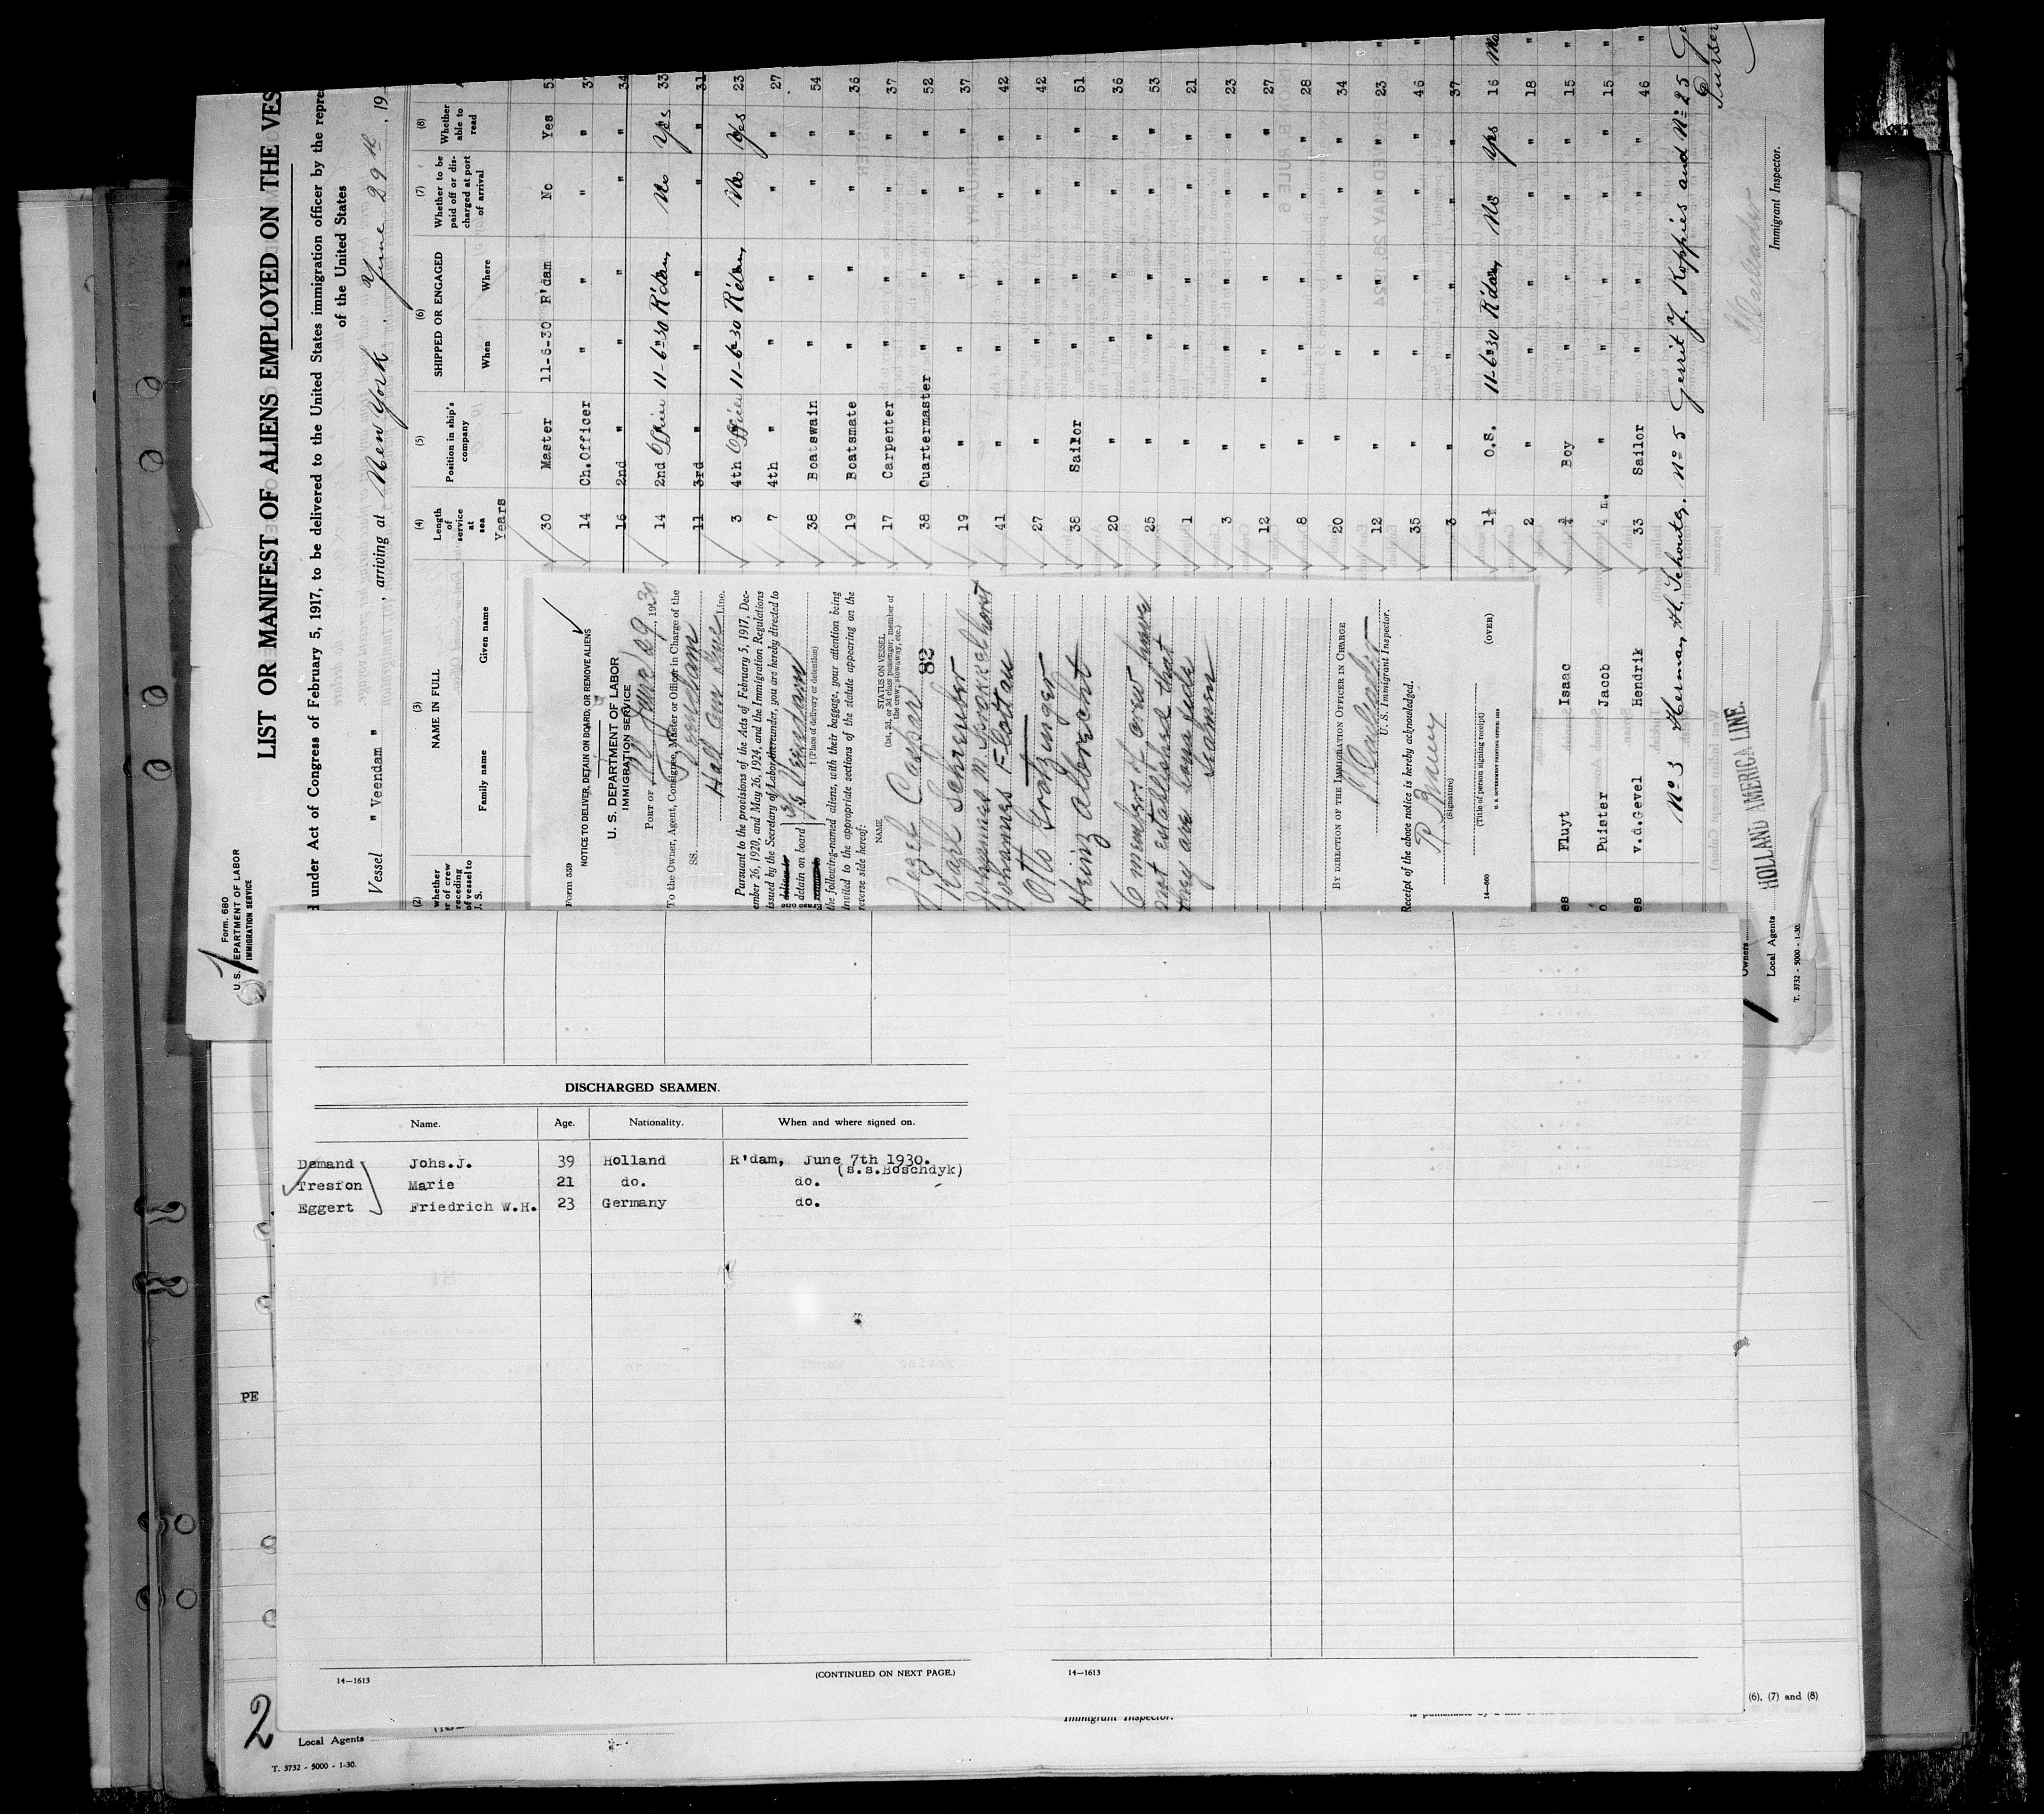 Form 680
U. S. DEPARTMENT OF LABOR
IMMIGRATION SERVICE
LIST OR MANIFEST OF ALIENS EMPLOYED ON THE VES
d under Act of Congress of February 5, 1917, to be delivered to the United States immigration officer by the repre
of the United States
Vessel "Veendam", arriving at New York, June 29th, 19
(2) (3) (4) (5) (6) (7) (8)
NAME IN FULL
Family name Given name
Length of service at sea
Years
Position in ship's company
SHIPPED OR ENGAGED
When Where
Whether to be paid off or discharged at port of arrival
Whether able to read
30 Master 11-6-30 R'dam No Yes
14 Ch.Officer " " " " 37
16 2nd " " " " " 34
14 2nd Officer 11-6-30 R'dam No Yes 33
11 3rd " " " " " 31
3 4th Officer 11-6-30 R'dam No Yes 23
7 4th " " " " " 27
38 Boatswain " " " " 54
19 Boatsmate " " " " 36
17 Carpenter " " " " 37
38 Quartermaster " " " " 52
19 " " " " " 37
41 " " " " " 42
27 " " " " " 42
38 Sailor " " " " 51
20 " " " " " 36
25 " " " " " 53
1 " " " " " 21
3 " " " " " 23
12 " " " " " 27
8 " " " " " 28
20 " " " " " 34
12 " " " " " 23
35 " " " " " 46
3 " " " " " 37
1½ O.S. 11-6-30 R'dam No Yes 16
2 " " " " " 18
Fluyt Isaac Boy " " " " 15
Puister Jacob 4 m. " " " " " 15
v.d.Gevel Hendrik 33 Sailor " " " " 46
No 3 Herman H. Schouten. No 5 Gerrit J. Koppies and No 25
Purser
Immigrant Inspector.
Owners
Local Agents HOLLAND AMERICA LINE.
T. 3732 - 5000 - 1-30.
Form 559
NOTICE TO DELIVER, DETAIN ON BOARD, OR REMOVE ALIENS
U. S. DEPARTMENT OF LABOR
IMMIGRATION SERVICE
PORT OF N.Y. June 29, 1930
To the Owner, Agent, Consignee, Master or Officer in Charge of the
SS. Veendam
Holl Am Line Line.
Pursuant to the provisions of the Acts of February 5, 1917, Dec-
ember 26, 1920, and May 26, 1924, and the Immigration Regulations
issued by the Secretary of Labor thereunder, you are hereby directed to
detain on board SS Veendam
(Place of delivery or detention)
the following-named aliens, with their baggage, your attention being
invited to the appropriate sections of the statute appearing on the
reverse side hereof:
NAME
STATUS ON VESSEL
(1st, 2d, or 3d class passenger, member of
the crew, stowaway, etc.)
Jozef Caspar
82
Karl Schreuber
Johannes M Brokelhorst
Johannes Flottau
Otto Gratzinger
Heinz Albrecht
6 members of crew have
not established that
they are bona fide
seamen
BY DIRECTION OF THE IMMIGRATION OFFICER IN CHARGE
U. S. Immigrant Inspector.
Receipt of the above notice is hereby acknowledged.
(Signature)
(Title of person signing receipt)
(OVER)
U. S. GOVERNMENT PRINTING OFFICE
DISCHARGED SEAMEN.
Name. Age. Nationality. When and where signed on.
Demand Johs.J. 39 Holland R'dam, June 7th 1930.
(s.s.Boschdyk)
Treston Marie 21 do. do.
Eggert Friedrich W.H. 23 Germany do.
14—1613 (CONTINUED ON NEXT PAGE.) 14—1613
PE
(6), (7) and (8)
Immigrant Inspector.
2
Local Agents
T. 3732 - 5000 - 1-30.